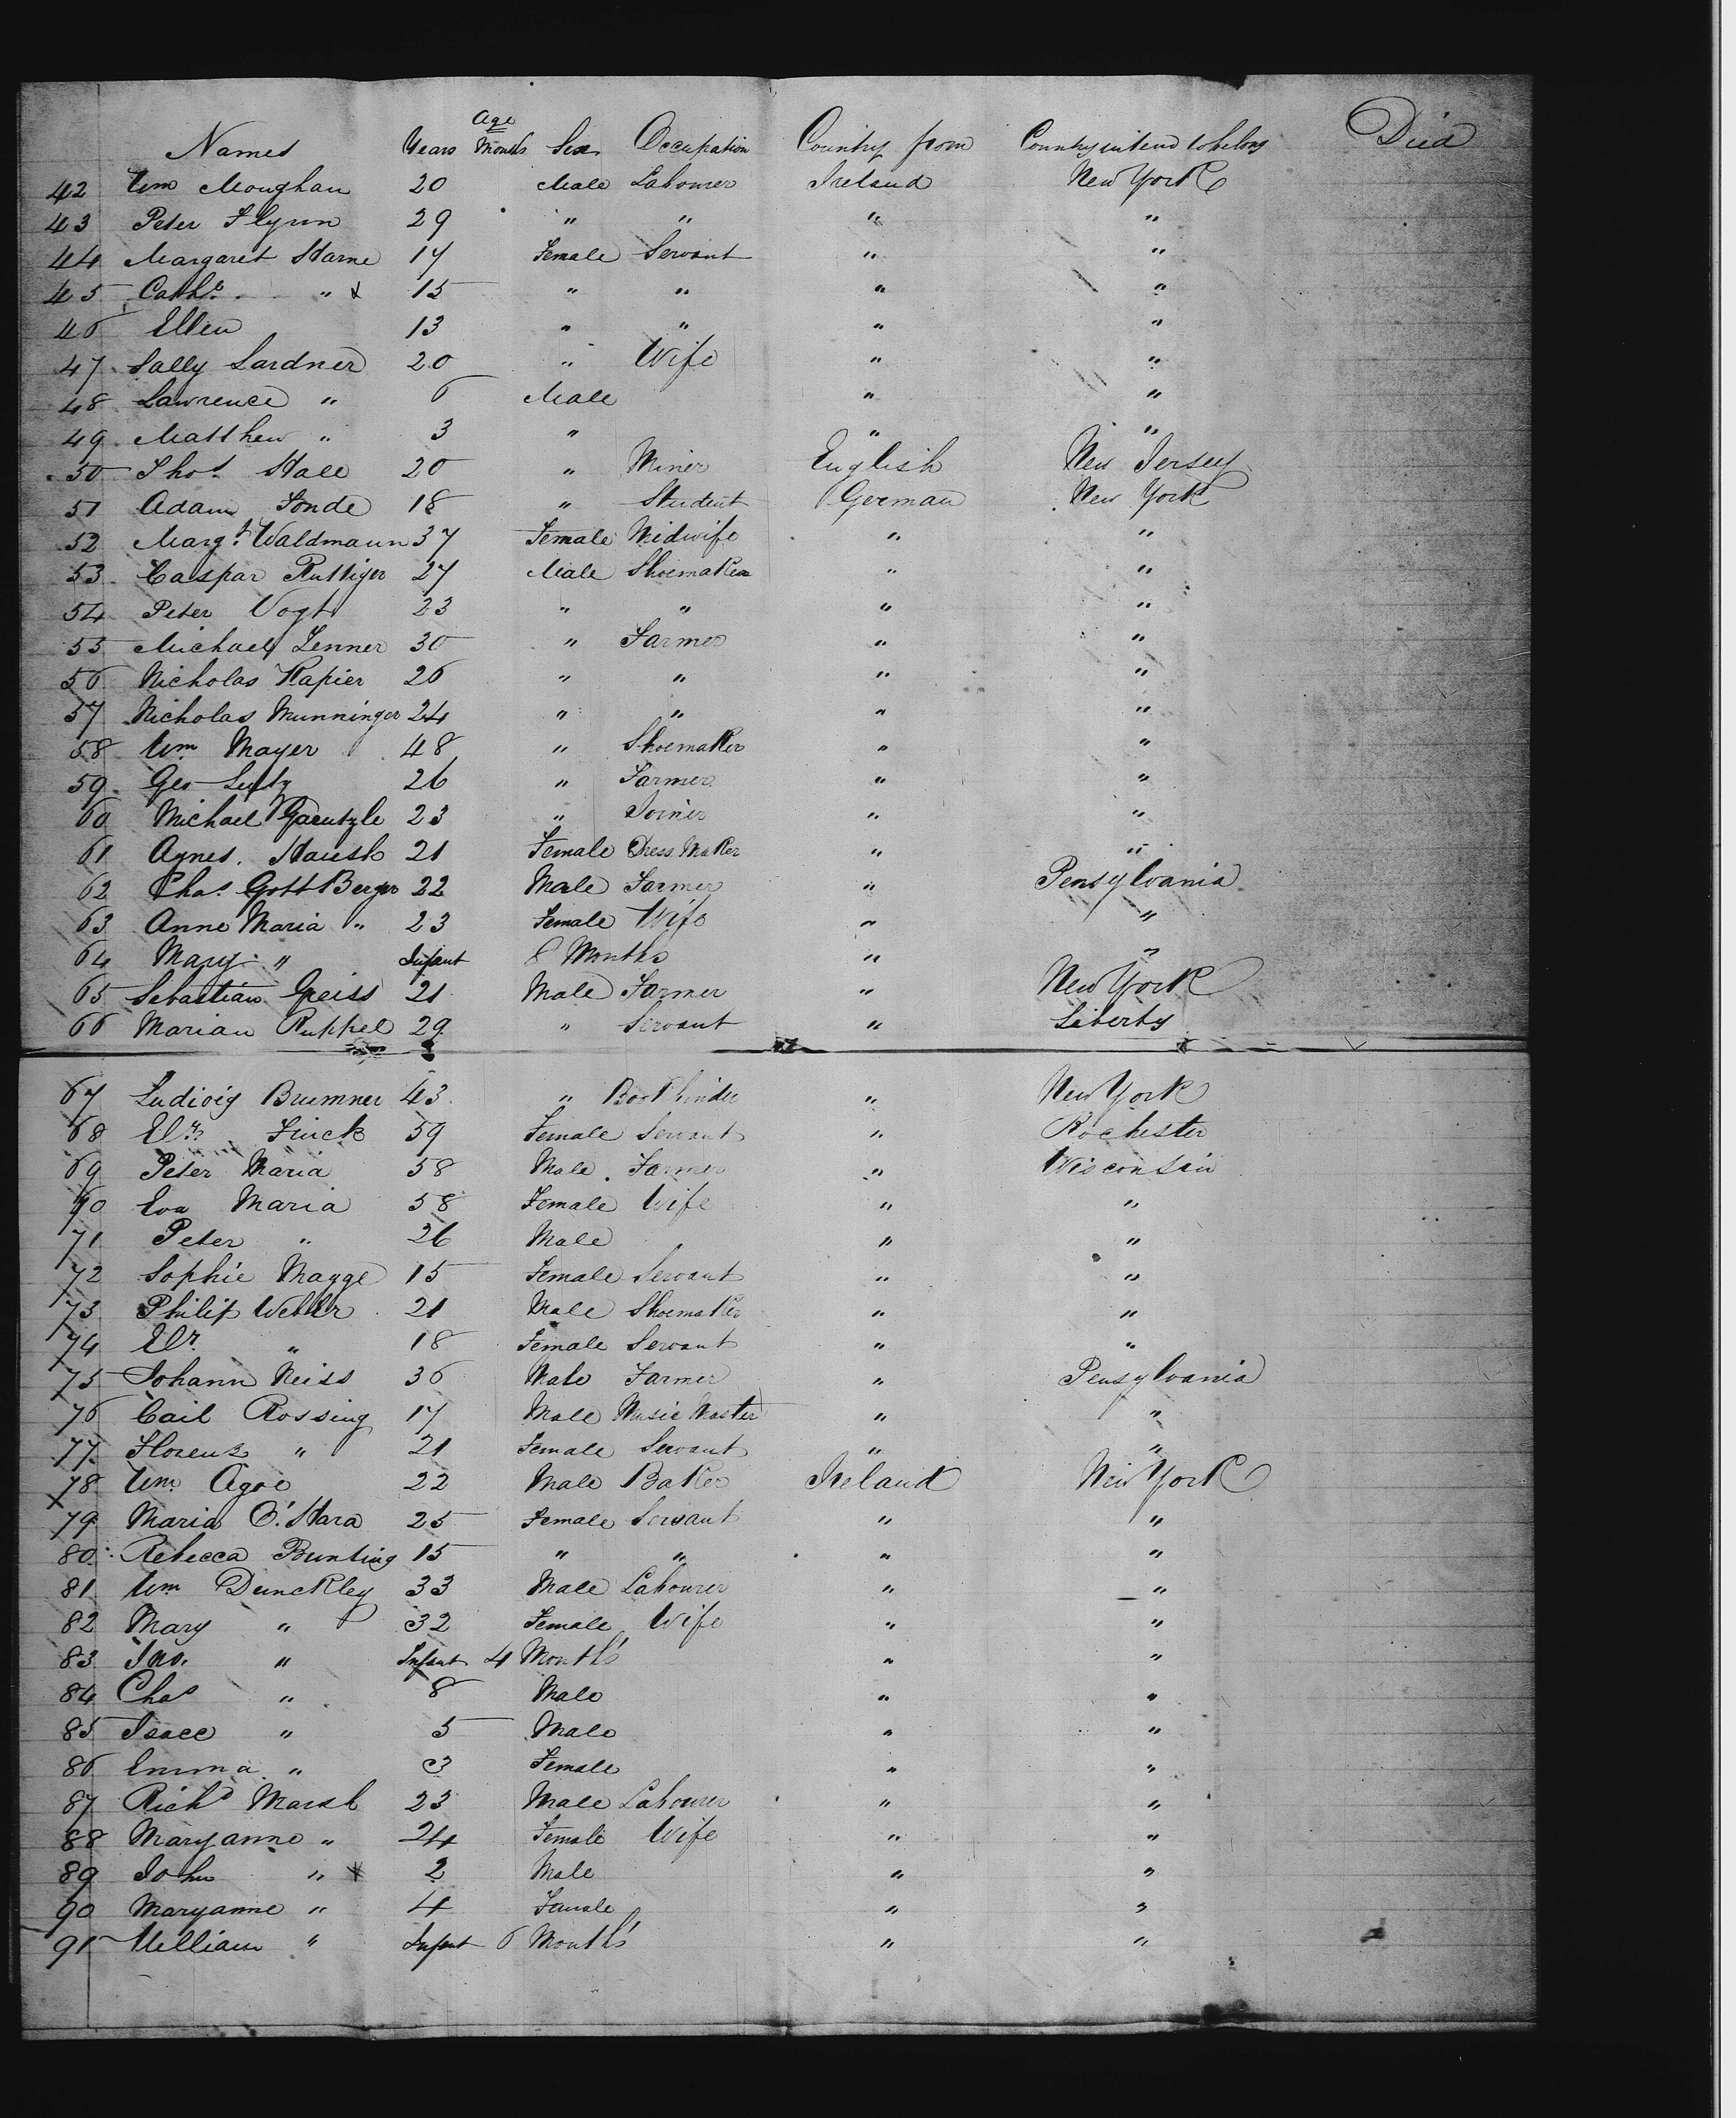 Age
Names Years Months Sex Occupation Country from Country intend to belong Died
42 Wm Moughan 20 Male Labourer Ireland New York
43 Peter Flynn 29 " " " "
44 Margaret Harne 17 Female Servant " "
45 Cathe " x 15 " " " "
46 Ellen 13 " " " "
47 Sally Lardner 20 " Wife " "
48 Lawrence " 6 Male " "
49 Matthew " 3 " " "
50 Thos Hall 20 " Miner English New Jersey
51 Adam Fonde 18 " Student German New York
52 Margt Waldmann 37 Female Midwife " "
53 Caspar Ruttiger 27 Male Shoemaker " "
54 Peter Vogt 23 " " " "
55 Michael Lenner 30 " Farmer " "
56 Nicholas Rapier 26 " " " "
57 Nicholas Munninger 24 " " " "
58 Wm Mayer 48 " Shoemaker " "
59 Geo Lutz 26 " Farmer " "
60 Michael Gaentzle 23 " Joiner " "
61 Agnes 21 Female Dress Maker " "
62 Chas Gott Berger 22 Male Farmer " Pensylvania
63 Anne Maria " 23 Female Wife " "
64 Mary " Infant 8 Months " "
65 Sebastian Geiss 21 Male Farmer " New York
66 Marian Ruppel 29 " Servant " Liberty
67 Ludwig Brumner 43 " Bookbinder " New York
68 Elr Finck 59 Female Servant " Rochester
69 Peter Maria 58 Male Farmer " Wisconsin
70 Eva Maria 58 Female Wife " "
71 Peter " 26 Male " "
72 Sophie Magge 15 Female Servant " "
73 Philip Weller 21 Male Shoemaker " "
74 Elr " 18 Female Servant " "
75 Johann Neiss 36 Male Farmer " Pensylvania
76 Cail Rossing 17 Male Music Master " "
77 Florenz " 21 Female Servant " "
78 Wm Agoe 22 Male Baker Ireland New York
79 Maria O'Hara 25 Female Servant " "
80 Rebecca Bunting 15 " " " "
81 Wm Dunckley 33 Male Labourer " "
82 Mary " 32 Female Wife " "
83 Jno. " Infant 4 Months " "
84 Chas " 8 Male " "
85 Isace " 5 Male " "
86 Emma " 3 Female " "
87 Richd Marsh 23 Male Labourer " "
88 Maryanne " 24 Female Wife " "
89 John " x 2 Male " "
90 Maryanne " 4 Female " "
91 William " Infant 6 Months " "